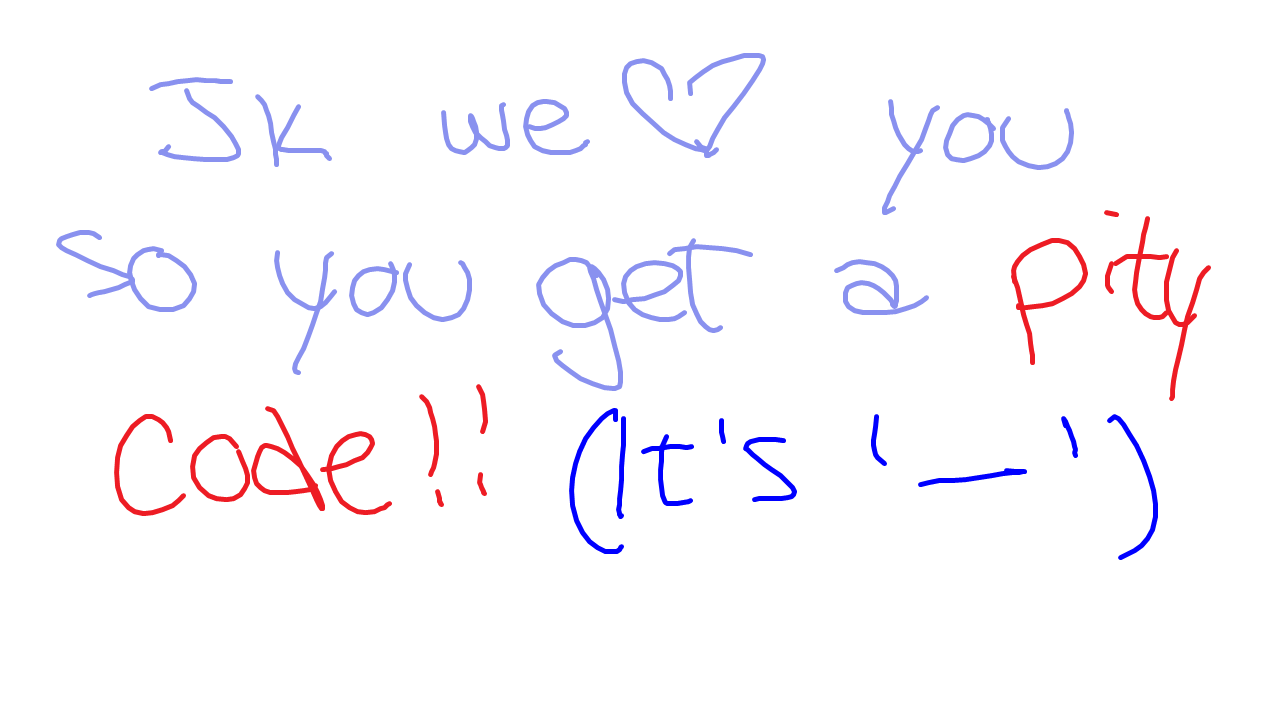 Jk we ♡ you
so you get a pity
Code!! (It's '—')